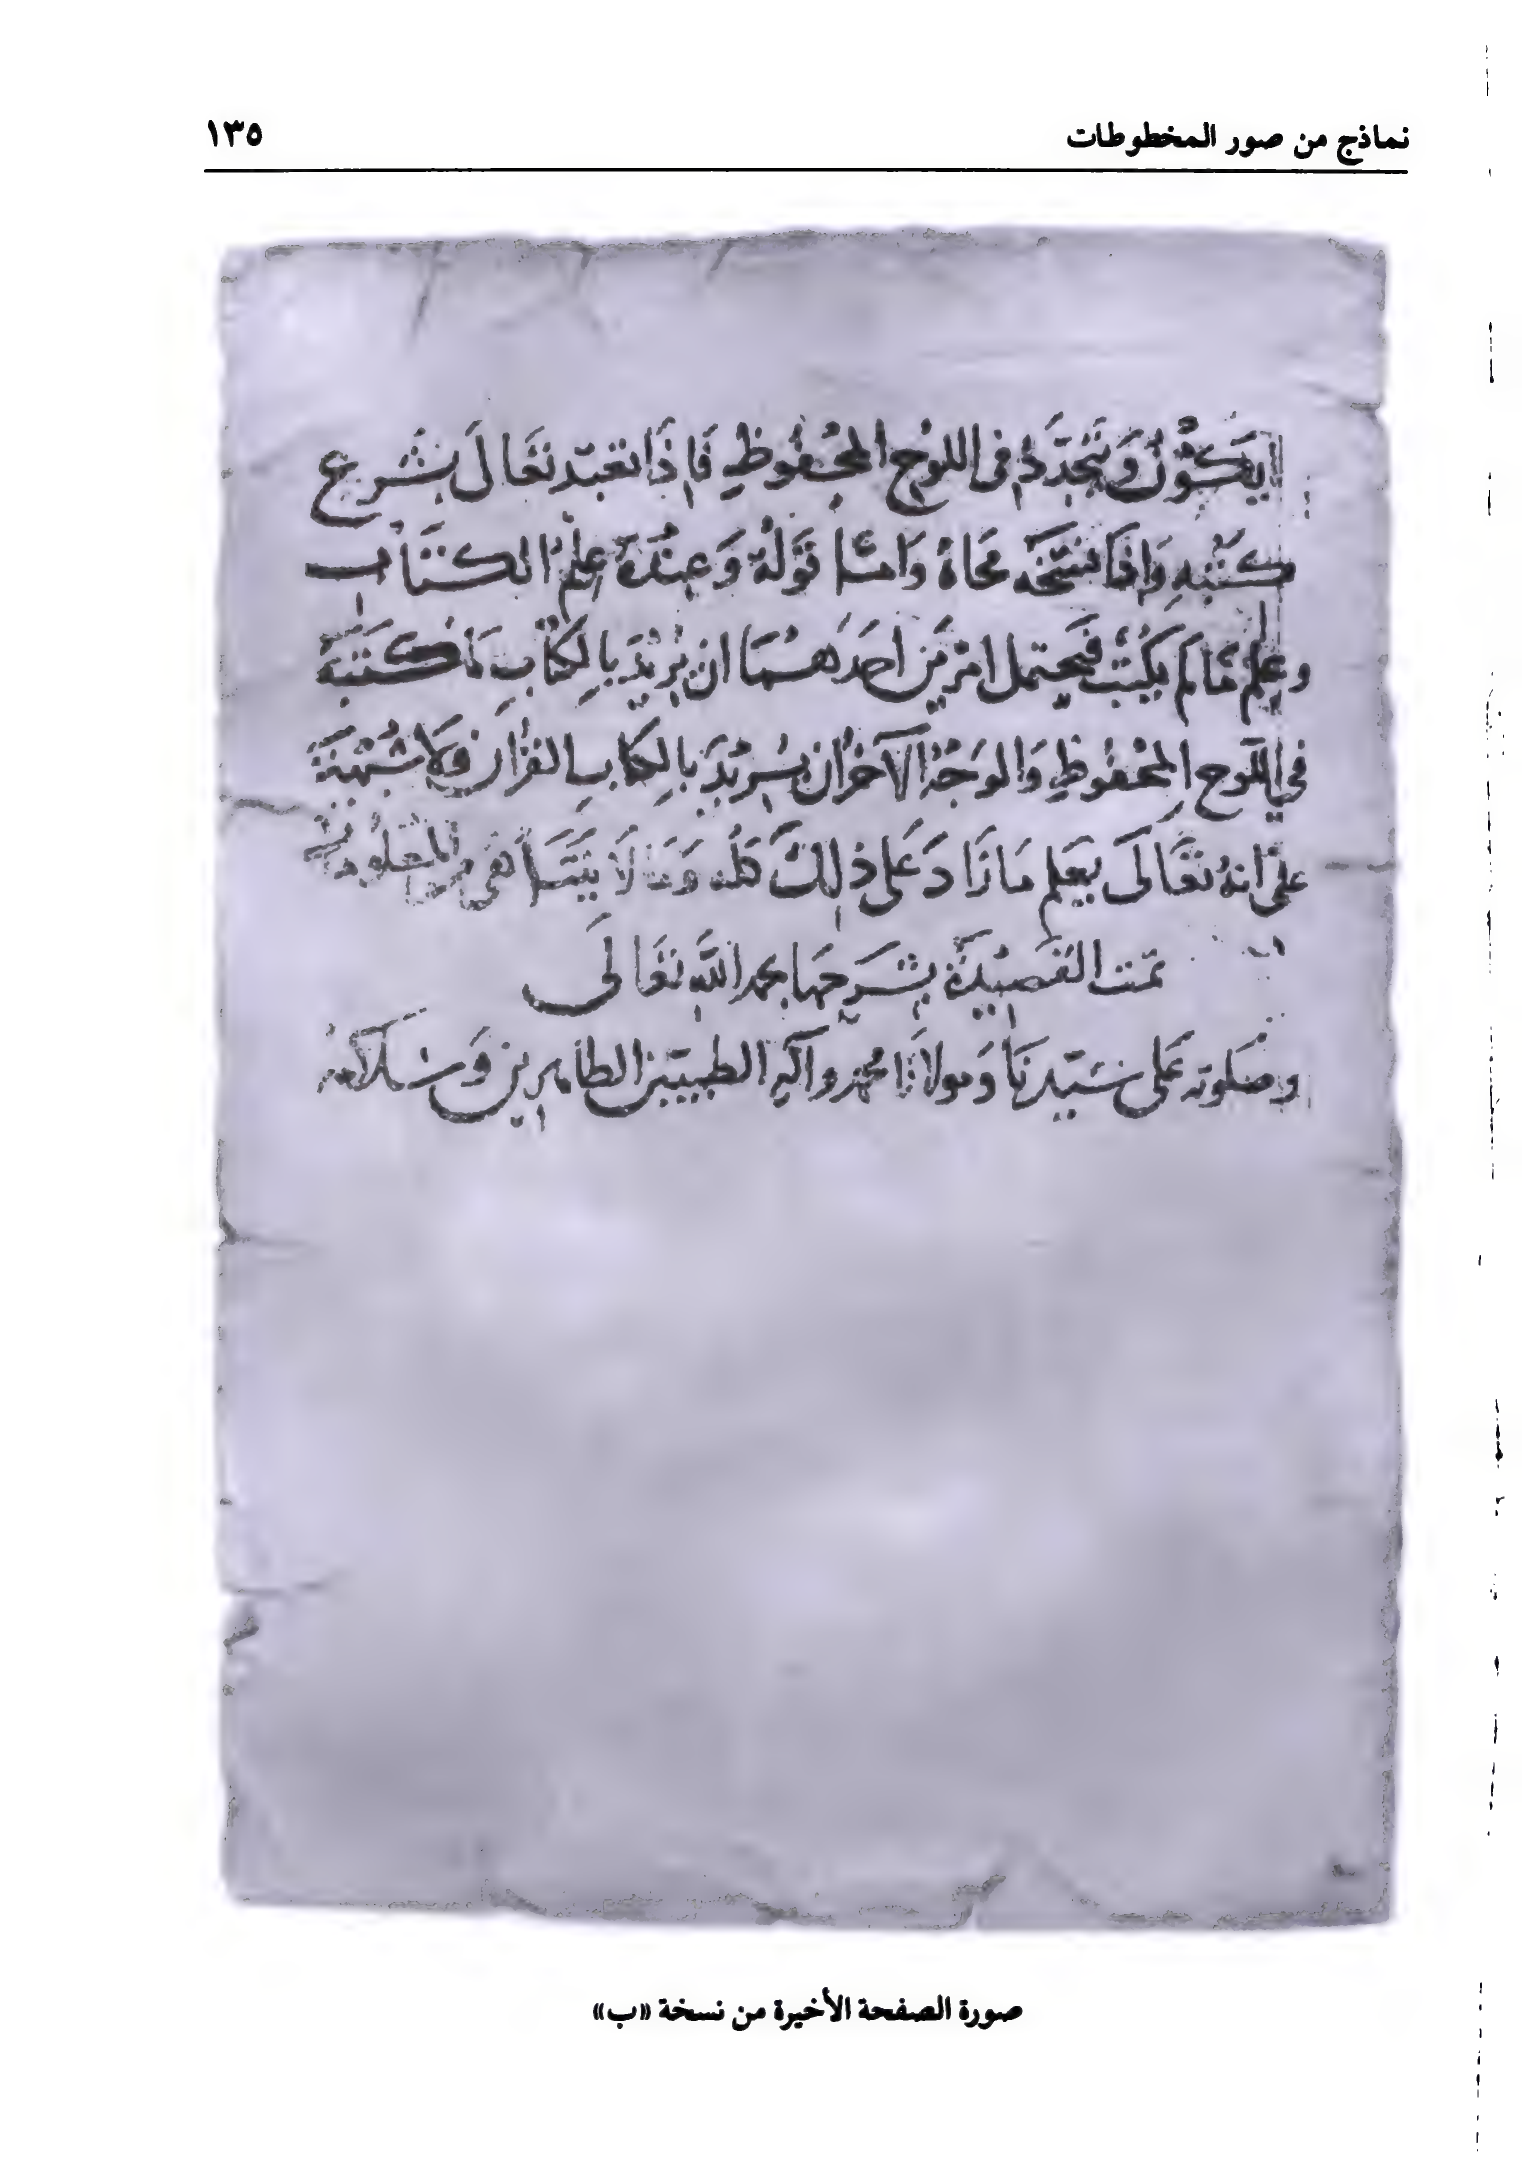 نماذج من صور المخطوطات ١٣٥
يكون ويتجدد في اللوح المحفوظ فاذا تعبد تعالى بشرع
كتبه واذا نسخه محاه واما قوله وعنده علم الكتاب
وعلم ما لم يكتب فيحتمل امرين احدهما ان يريد بالكتاب ما كتبه
في اللوح المحفوظ والوجه الآخر ان يريد بالكتاب القرآن ولا شبهة
على انه تعالى يعلم ما زاد على ذلك كله وما لا يتناهى من المعلومات
تمت القصيدة بشرحها بحمد الله تعالى
وصلوته على سيدنا ومولانا محمد وآله الطيبين الطاهرين وسلامه
صورة الصفحة الأخيرة من نسخة «ب»